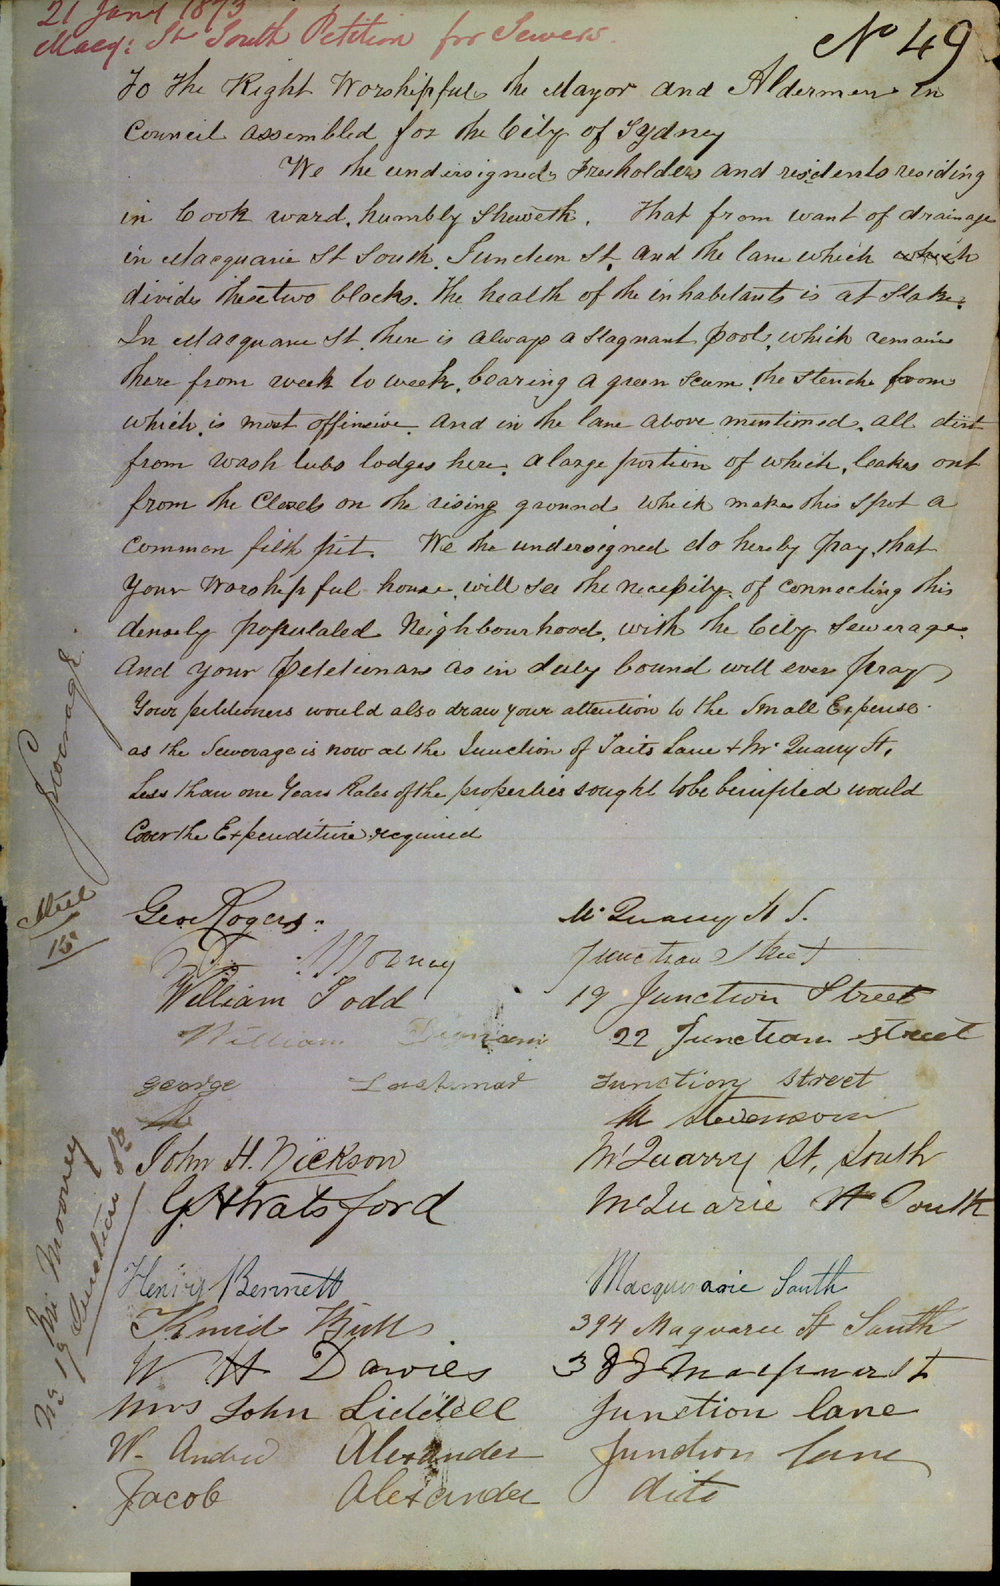 21 Jany 1873
Macq: St South Petition for Sewers.
No 49
To the Right Worshipful the Mayor and Aldermen in
Council assembled for the City of Sydney
We the undersigned Freeholders and residents residing
in Cook ward, humbly Sheweth. That from want of drainage
in Macquarie St South, Junction St, and the lane which which
divides these two blocks. The health of the inhabitants is at Stake.
In Macquarie St there is always a stagnant pool, which remains
there from week to week, bearing a green scum, the stench from
which is most offensive, and in the lane above mentioned, all dirt
from wash tubs lodges here, a large portion of which, leakes out
from the Closets on the rising ground which makes this spot a
common filth pit. We the undersigned do hereby pray, that
your Worshipful house, will see the necessity of connecting this
densely populated Neighbourhood, with the City Sewerage.
And your Petitionars as in duty bound will ever pray
Your petitioners would also draw your attention to the Small Expense
as the Sewerage is now at the Junction of Taits Lane + Mc Quarry St.
Less than one Years Rates of the properties sought to be benifited would
Cover the Expenditure required
Sewerage
Geo Rogers. Mc Quarry St S.
Mooney Junction Street
William Todd 19 Junction Street
William Dignam 22 Junction street
george Lastmar Junction street
M Stevenson
John H. Nickson McQuarry St, South
G Stratsford McQuarie St South
Henry Bennett Macquararie South
394 Maquarie St South
W H Davies 388 Macquar St
Mrs John Liddell Junction lane
W. Andrew Alexander Junction lane
Jacob Alexander dito
Mr Mooney
No 19 Junction St